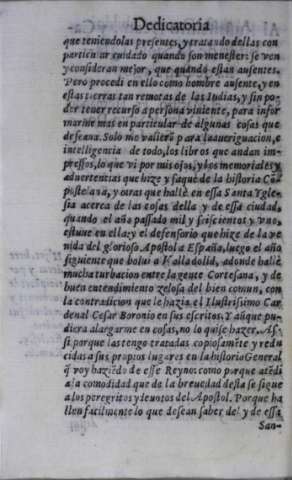 Dedicatoria
que teniendolas presentes, y tratando dellas con
particular cuidado quando son menester: se ven
y consideran mejor, que quando estan ausentes.
Pero procedi en ello como hombre ausente, y en
estas tierras tan remotas de las Indias, y sin po-
der tener recurso a persona viniente, para infor
marme mas en particular de algunas cosas que
deseaua. Solo me valieron para la aueriguacion, e
intelligencia de todo, los libros que andan im-
pressos, lo que vi por mis ojos, y los memoriales y
aduertencias que hize y saque de la historia Cõ
postelana, y otras que hallè en essa Santa Ygle-
sia acerca de las cosas della y de essa ciudad,
quando el año passado mil y seiscientos y vno,
estuue en ella: y el defensorio que hize de la ve
nida del glorioso Apostol a España, luego el año
siguiente que bolui a Valladolid, adonde hallè
mucha turbacion entre la gente Cortesana, y de
buen entendimiento zelosa del bien comun, con
la contradicion que le hazia el Ilustrissimo Car
denal Cesar Boronio en sus escritos. Y aũque pu-
diera alargarme en cosas, no lo quise hazer. As-
si porque las tengo tratadas copiosamẽte y redu
cidas a sus propios lugares en la historia General
q̃ voy haziẽdo de esse Reyno: como porque atẽdi
a la comodidad que de la breuedad desta se sigue
a los peregrinos y deuotos del Apostol. Porque ha
llen facilmente lo que desean saber del y de essa
San-